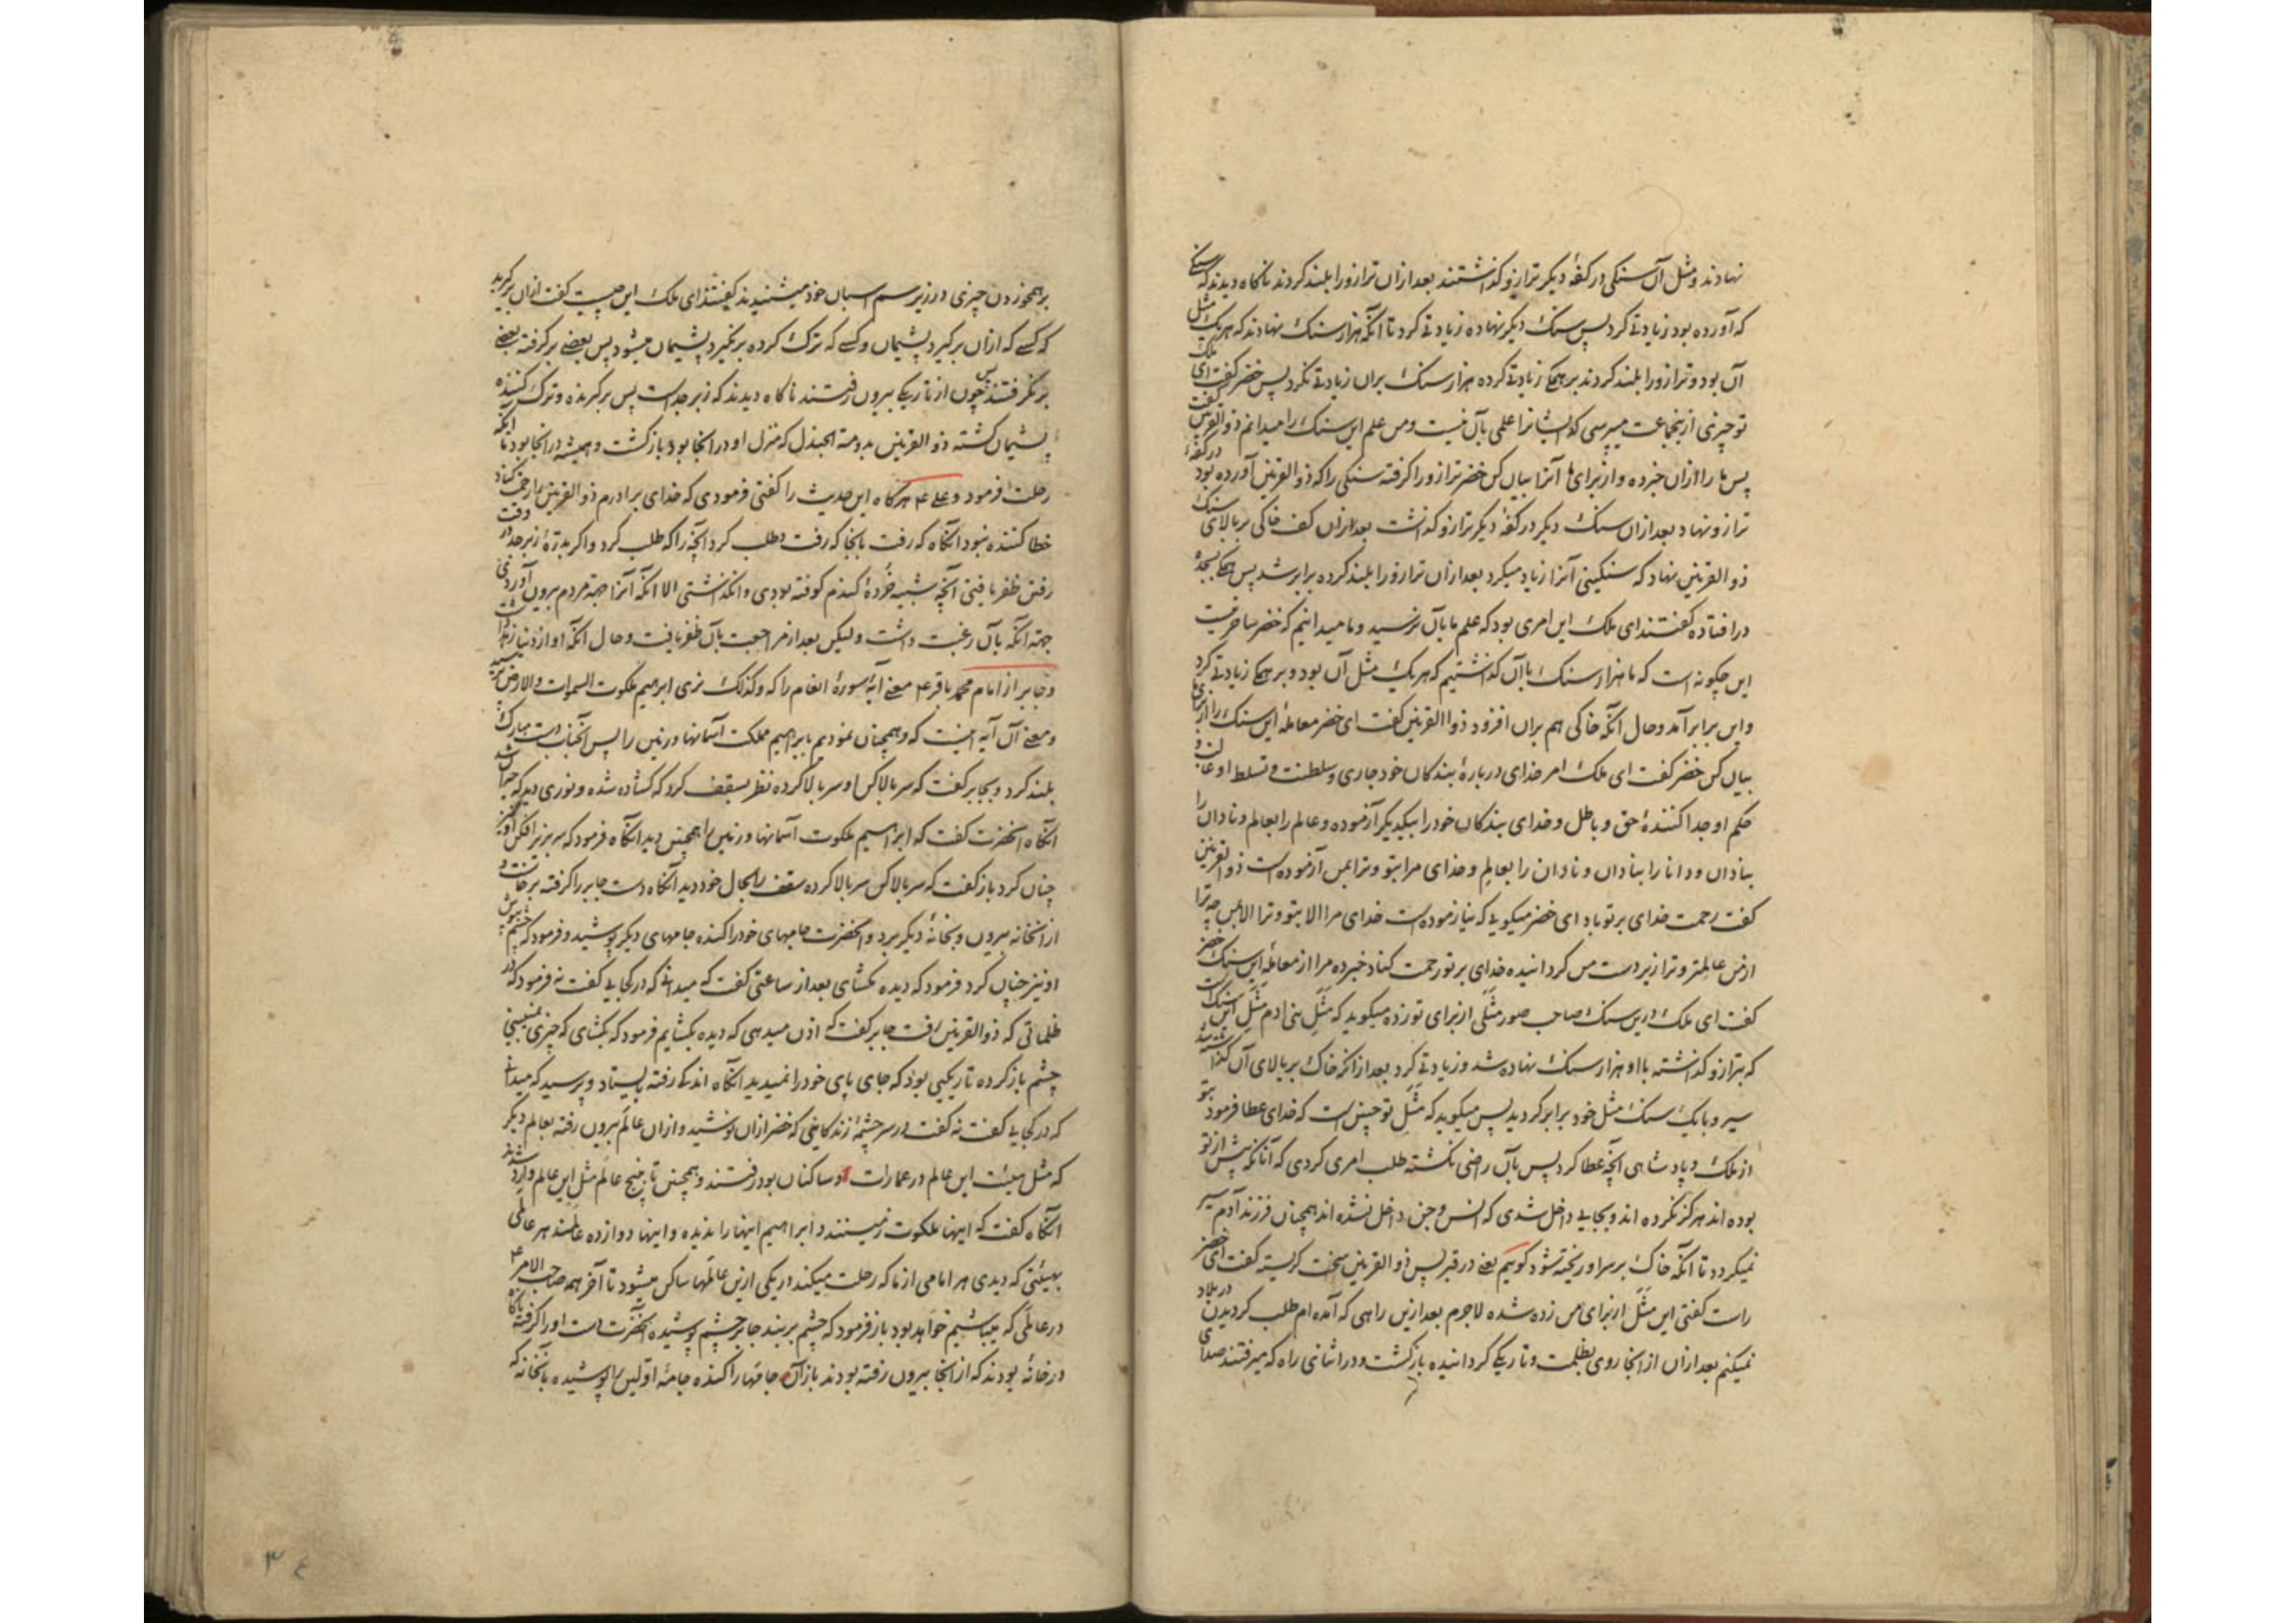 نهادند و مثل آن سنکی در کفهٔ دیکر ترازو کذاشتند بعد ازان ترازو را بلند کردند ناکاه دیدند که سنکی
که آورده بود زیادتی کرد پس سنک دیکر نهاده زیادتی کرد تا آنکه هزار سنک نهادند که هر یک مثل
آن بود و ترازو را بلند کردند بر همکی زیادتی کرده هزار سنک بران زیادتی نکرد پس خضر کفت ای ملک
تو چیزی ازینجماعت میپرسی که ایشانرا علمی بآن نیست و من علم این سنک را میدانم ذو القرنین کفت
پس ما را ازان خبر ده و از برای ما آنرا بیان کن خضر ترازو را کرفته سنکی را که ذو القرنین آورده بود در کفهٔ
ترازو نهاد بعد ازان سنک دیکر در کفهٔ دیکر ترازو کذاشت بعد ازان کف خاکی بر بالای سنک
ذو القرنین نهاد که سنکینی آنرا زیاد میکرد بعد ازان ترازو را بلند کرده برابر شد پس همکی بسجده
در افتاده کفتند ای ملک این امری بود که علم ما بآن نرسید و ما میدانیم که خضر ساحر نیست
این چکونه است که ما هزار سنک باآن کذاشتیم که هر یک مثل آن بود و بر همکی زیادتی کرد
و این برابر آمد و حال آنکه خاکی هم بران افزود ذو االقرنین کفت ای خضر معاملهٔ این سنک را از برای ما
بیان کن خضر کفت ای ملک امر خدای دربارهٔ بندکان خود جاری و سلطنت و تسلط او غالب و
حکم او جدا کنندهٔ حق و باطل و خدای بندکان خود را بیکدیکر آزموده و عالم را بعالم و نادان را
بنادان و دانا را بنادان و نادان را بعالم و خدای مرا بتو و ترا بمن آزموده است ذو القرنین
کفت رحمت خدای بر تو باد ای خضر میکویی که نیازموده است خدای مرا الا بتو و ترا الا بمن چه ترا
ازمن عالمتر و ترا زیر دست من کردانیده خدای بر تو رحمت کناد خبر ده مرا از معاملهٔ این سنک خضر
کفت ای ملک درین سنک صاحب صور مثلی از برای تو زده میکوید که مثل بنی ادم مثل این سنک است
که بترازو کذاشته با او هزار سنک نهاده شد و زیادتی کرد بعد ازانکه خاک بر بالای آن کذاشتند
سیر و با یک سنک مثل خود برابر کردید پس میکوید که مثل تو چنین است که خدای عطا فرمود بتو
از ملک و پادشاهی آنچه عطا کرد پس بآن راضی نکشته طلب امری کردی که آنانکه پیش از تو
بوده اند هرکز نکرده اند و بجایی داخل شدی که انس و جن داخل نشده اند همچنان فرزند آدم سیر
نمیکردد تا آنکه خاک بر سر او ریخته شود کوییم یعنی در قبر پس ذو القرنین سخت کریسته کفت ای خضر
راست کفتی این مثل از برای من زده شده لاجرم بعد ازین راهی که آمده ام طلب کردیدن در بلاد
نمیکنم بعد ازان از انجا روی بظلمت و تاریکی کردانیده بازکشت و در اثنای راه که میرفتند صدای
بر همخوردن چیزی در زیر سم اسبان خود میشنیدند کفتند ای ملک این چیست کفت ازان برکیرید
که کسی که ازان برکیرد پشیمان و کسی که ترک کرده برنکیرد پشیمان میشود پس بعضی برکرفته بعضی
برنکرفتند پس چون از تاریکی بیرون رفتند ناکاه دیدند که زبرجد است پس برکیرنده و ترک کننده
پشیمان کشته ذو القرنین بدومة الجندل که منزل او در انجا بود بازکشت و همیشه در انجا بود تا آنکه
رحلت فرمود و علی ع هرکاه این حدیث را کفتی فرمودی که خدای برادرم ذو القرنین را رحمت کناد
خطا کننده نبود آنکاه که رفت بانجا که رفت و طلب کرد آنچه را که طلب کرد و اکر بدرّهٔ زبرجد در وقت
رفتن ظفر یافتی آنچه شبیه خردهٔ کندم کوفته بودی وانکذاشتی الا آنکه آنرا جهة مردم بیرون آوردی
جهة آنکه بآن رغبت داشت و لیکن بعد از مراجعت بآن ظفر یافت و حال آنکه او از دنیا
و جابر از امام محمد باقر ع معنی آیهٔ سورهٔ انعام را که و کذلک نری ابرهیم ملکوت السموات و الارض پرسید
و معنی آن آیه اینست که و همچنان نمودیم بابراهیم مملکت آسمانها و زمین را پس آنجناب دست مبارک
بلند کرد و بجابر کفت که سر بالا کن او سر بالا کرده نظر بسقف کرد که کشاده شده و نوری دید که
آنکاه آنحضرت کفت که ابراهیم ملکوت آسمانها و زمین را همچنین دید آنکاه فرمود که سر بزیر افکن او نیز
چنان کرد باز کفت که سر بالا کن سر بالا کرده سقف را بحال خود دید آنکاه دست جابر را کرفته برخاست و
از انخانه بیرون و بخانهٔ دیکر برد و آنحضرت جامهای خود را کنده جامهای دیکر پوشید و فرمود که چشم بپوش
او نیز چنان کرد فرمود که دیده مکشای بعد از ساعتی کفت که میدانی که در کجایی کفت نه فرمود که در
ظلماتی که ذو القرنین رفت جابر کفت که اذن میدهی که دیده بکشایم فرمود که بکشای که چیزی نمیبینی
چشم باز کرده تاریکیی بود که جای پای خود را نمیدید آنکاه اندکی رفته بایستاد و پرسید که میدانی
که در کجایی کفت نه کفت در سر چشمهٔ زندکانیی که خضر ازان نوشید و ازان عالم بیرون رفته بعالم دیکر
که مثل هیئت این عالم در عمارات و ساکنان بود رفتند و همچنین تا پنج عالم مثل این عالم وارد شدند
آنکاه کفت که اینها ملکوت زمیستند و ابراهیم اینها را ندیده و اینها دوازده عالمند هر عالمی
بهیئتی که دیدی هر امامی از ما که رحلت میکند در یکی ازین عالمها ساکن میشود تا آخر همه صاحب الامر ع
در عالمی که میباشیم خواهد بود باز فرمود که چشم بربند جابر چشم پوشیده آنحضرت دست او را کرفته ناکاه
در خانهٔ بودند که از انجا بیرون رفته بودند باز آن جامها را کنده جامهٔ اولین را پوشیده بانخانه که
۳۴